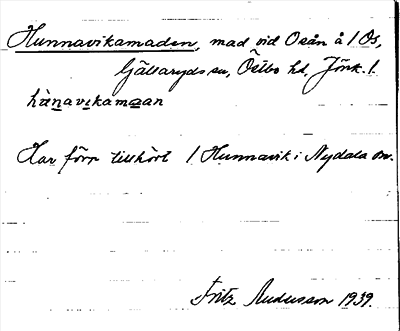 Hunnavikamaden, mad vid Osån å 1 Os,
Gällaryds sn, Östbo hd, Jönk. l.
hènavikamaan
Har förr tillhört 1 Hunnavik i Nydala sn.
Fritz Andersson 1939.